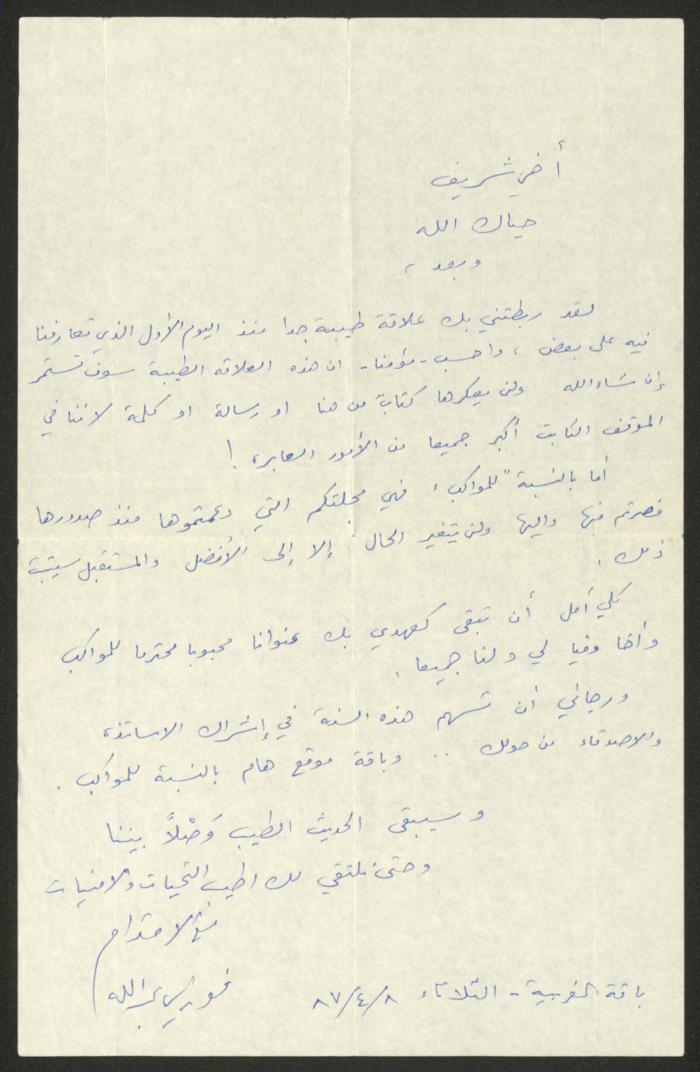 أخي شريف
حياك الله
وبعد ،
لقد ربطتني بك علاقة طيبة جدا منذ اليوم الأول الذي تعارفنا
فيه على بعض ، واحسب - مؤمنا - ان هذه العلاقة الطيبة سوف تستمر
إن شاء الله ولن يعكرها كتاب من هنا او رسالة او كلمة لاننا في
الموقف الثابت أكبر جميعا من الأمور العابرة !
أما بالنسبة "للمواكب" فهي مجلتكم التي دعمتموها منذ صدورها
فصرتم منها واليها ولن يتغير الحال إلا إلى الأفضل والمستقبل سيثبت
ذلك .
كلي أمل أن تبقى كعهدي بك عنوانا محبوبا محترما للمواكب
وأخا وفيا لي ولنا جميعا .
ورجائي أن تسهم هذه السنة في إشراك الاساتذة
والاصدقاء من حولك .. وباقة موقع هام بالنسبة للمواكب .
وسيبقى الحديث الطيب وَصْلاً بيننا
وحتى نلتقي لك اطيب التحيات والامنيات
مع الاحترام
فوزي عبدالله
باقة الغربية - الثلاثاء ٨/٤/٨٧